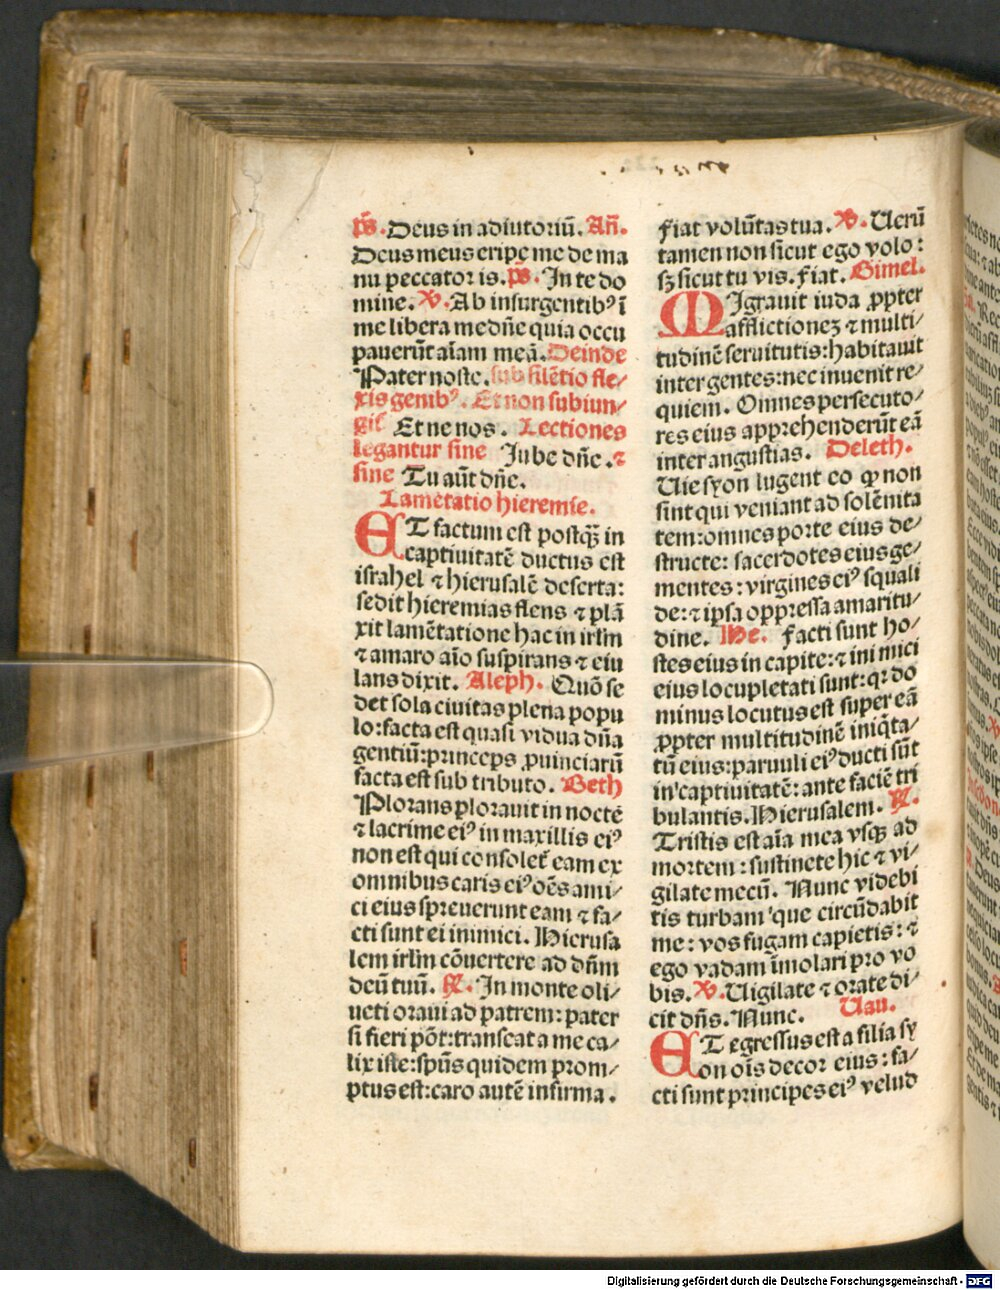 ps̄. Deus in adiutoriū. Añ.
Deus meus eripe me de ma
nu peccatoris. ps. In te do
mine. ℣. Ab insurgentibꝰ ī
me libera me dn̄e quia occu
pauerūt aīam meā. Deinde
Pater noste. sub silētio fle⸗
xis genibꝰ. Et non subiun⸗
git̄ Et ne nos. Lectiones
legantur sine Jube dn̄e. ⁊
sine Tu aūt dn̄e.
Lamētatio hieremie.
ET factum est postqȝ̄ in
captiuitatē ductus est
israhel ⁊ hierusalē deserta:
sedit hieremias flens ⁊ plā
xit lamētatione hac in irlm̄
⁊ amaro aīo suspirans ⁊ eiu
lans dixit. Aleph. Quō se
det sola ciuitas plena popu
lo: facta est quasi vidua dn̄a
gentiū: princeps ꝓuinciarū
facta est sub tributo. Beth
Plorans plorauit in nocte
⁊ lacrime eiꝰ in maxillis eiꝰ
non est qui consolet̄ eam ex
omnibus caris eiꝰ oēs ami⸗
ci eius spreuerunt eam ⁊ fa⸗
cti sunt ei inimici. Hierusa
lem irlm̄ cōuertere ad dn̄m
deū tuū. ℟. In monte oli⸗
ueti oraui ad patrem: pater
si fieri pōt: transeat a me ca⸗
lix iste: sp̄us quidem prom⸗
ptus est: caro autē infirma.
fiat volūtas tua. ℣. Uerū
tamen non sicut ego volo:
sꝫ sicut tu vis. Fiat. Gimel.
MIgrauit iuda ꝓpter
afflictioneȝ ⁊ multi⸗
tudinē seruitutis: habitauit
inter gentes: nec inuenit re⸗
quiem. Omnes persecuto⸗
res eius apprehenderūt eā
inter angustias. Deleth.
Uie syon lugent eo ꝙ non
sint qui veniant ad solēnita
tem: omnes porte eius de⸗
structe: sacerdotes eius ge⸗
mentes: virgines eiꝰ squali
de: ⁊ ipsa oppressa amaritu⸗
dine. He. Facti sunt ho⸗
stes eius in capite: ⁊ inimici
eius locupletati sunt: qꝛ do
minus locutus est super eā
ꝓpter multitudinē iniq̄ta⸗
tū eius: paruuli eiꝰ ducti sūt
in captiuitatē: ante faciē tri
bulantis. Hierusalem. ℟.
Tristis est aīa mea vsqȝ ad
mortem: sustinete hic ⁊ vi⸗
gilate mecū. Nunc videbi
tis turbam que circūdabit
me: vos fugam capietis: ⁊
ego vadam īmolari pro vo
bis. ℣. Uigilate ⁊ orate di⸗
cit dn̄s. Nunc. Uau.
ET egressus est a filia sy
on oīs decor eius: fa⸗
cti sunt principes eiꝰ velud
Digitalisierung gefördert durch die Deutsche Forschungsgemeinschaft - DFG